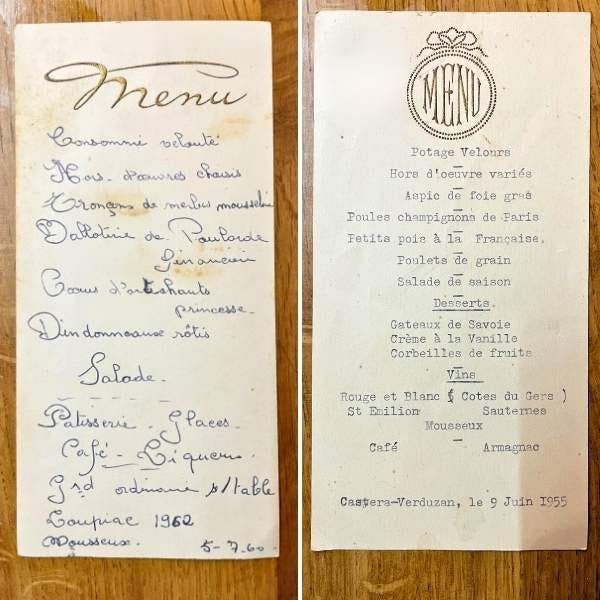 Menu
Consommé velouté
Hors-d'œuvres choisis
Tronçons de merlus mousseline
Ballotine de Poularde
Financière
Cœurs d'artichauts
princesse.
Dindonneaux rôtis
Salade.
Patisserie. Glaces.
Café - Liqueurs
Grd ordinaire s/table
Loupiac 1962
Mousseux. 5-7.60.
MENU
Potage Velours
Hors d'oeuvre variés
Aspic de foie gras
Poules champignons de Paris
Petits pois à la Française.
Poulets de grain
Salade de saison
Desserts.
Gateaux de Savoie
Crème à la Vanille
Corbeilles de fruits
Vins
Rouge et Blanc ( Cotes du Gers )
St Emilion Sauternes
Mousseux
Café Armagnac
Castera-Verduzan, le 9 Juin 1955